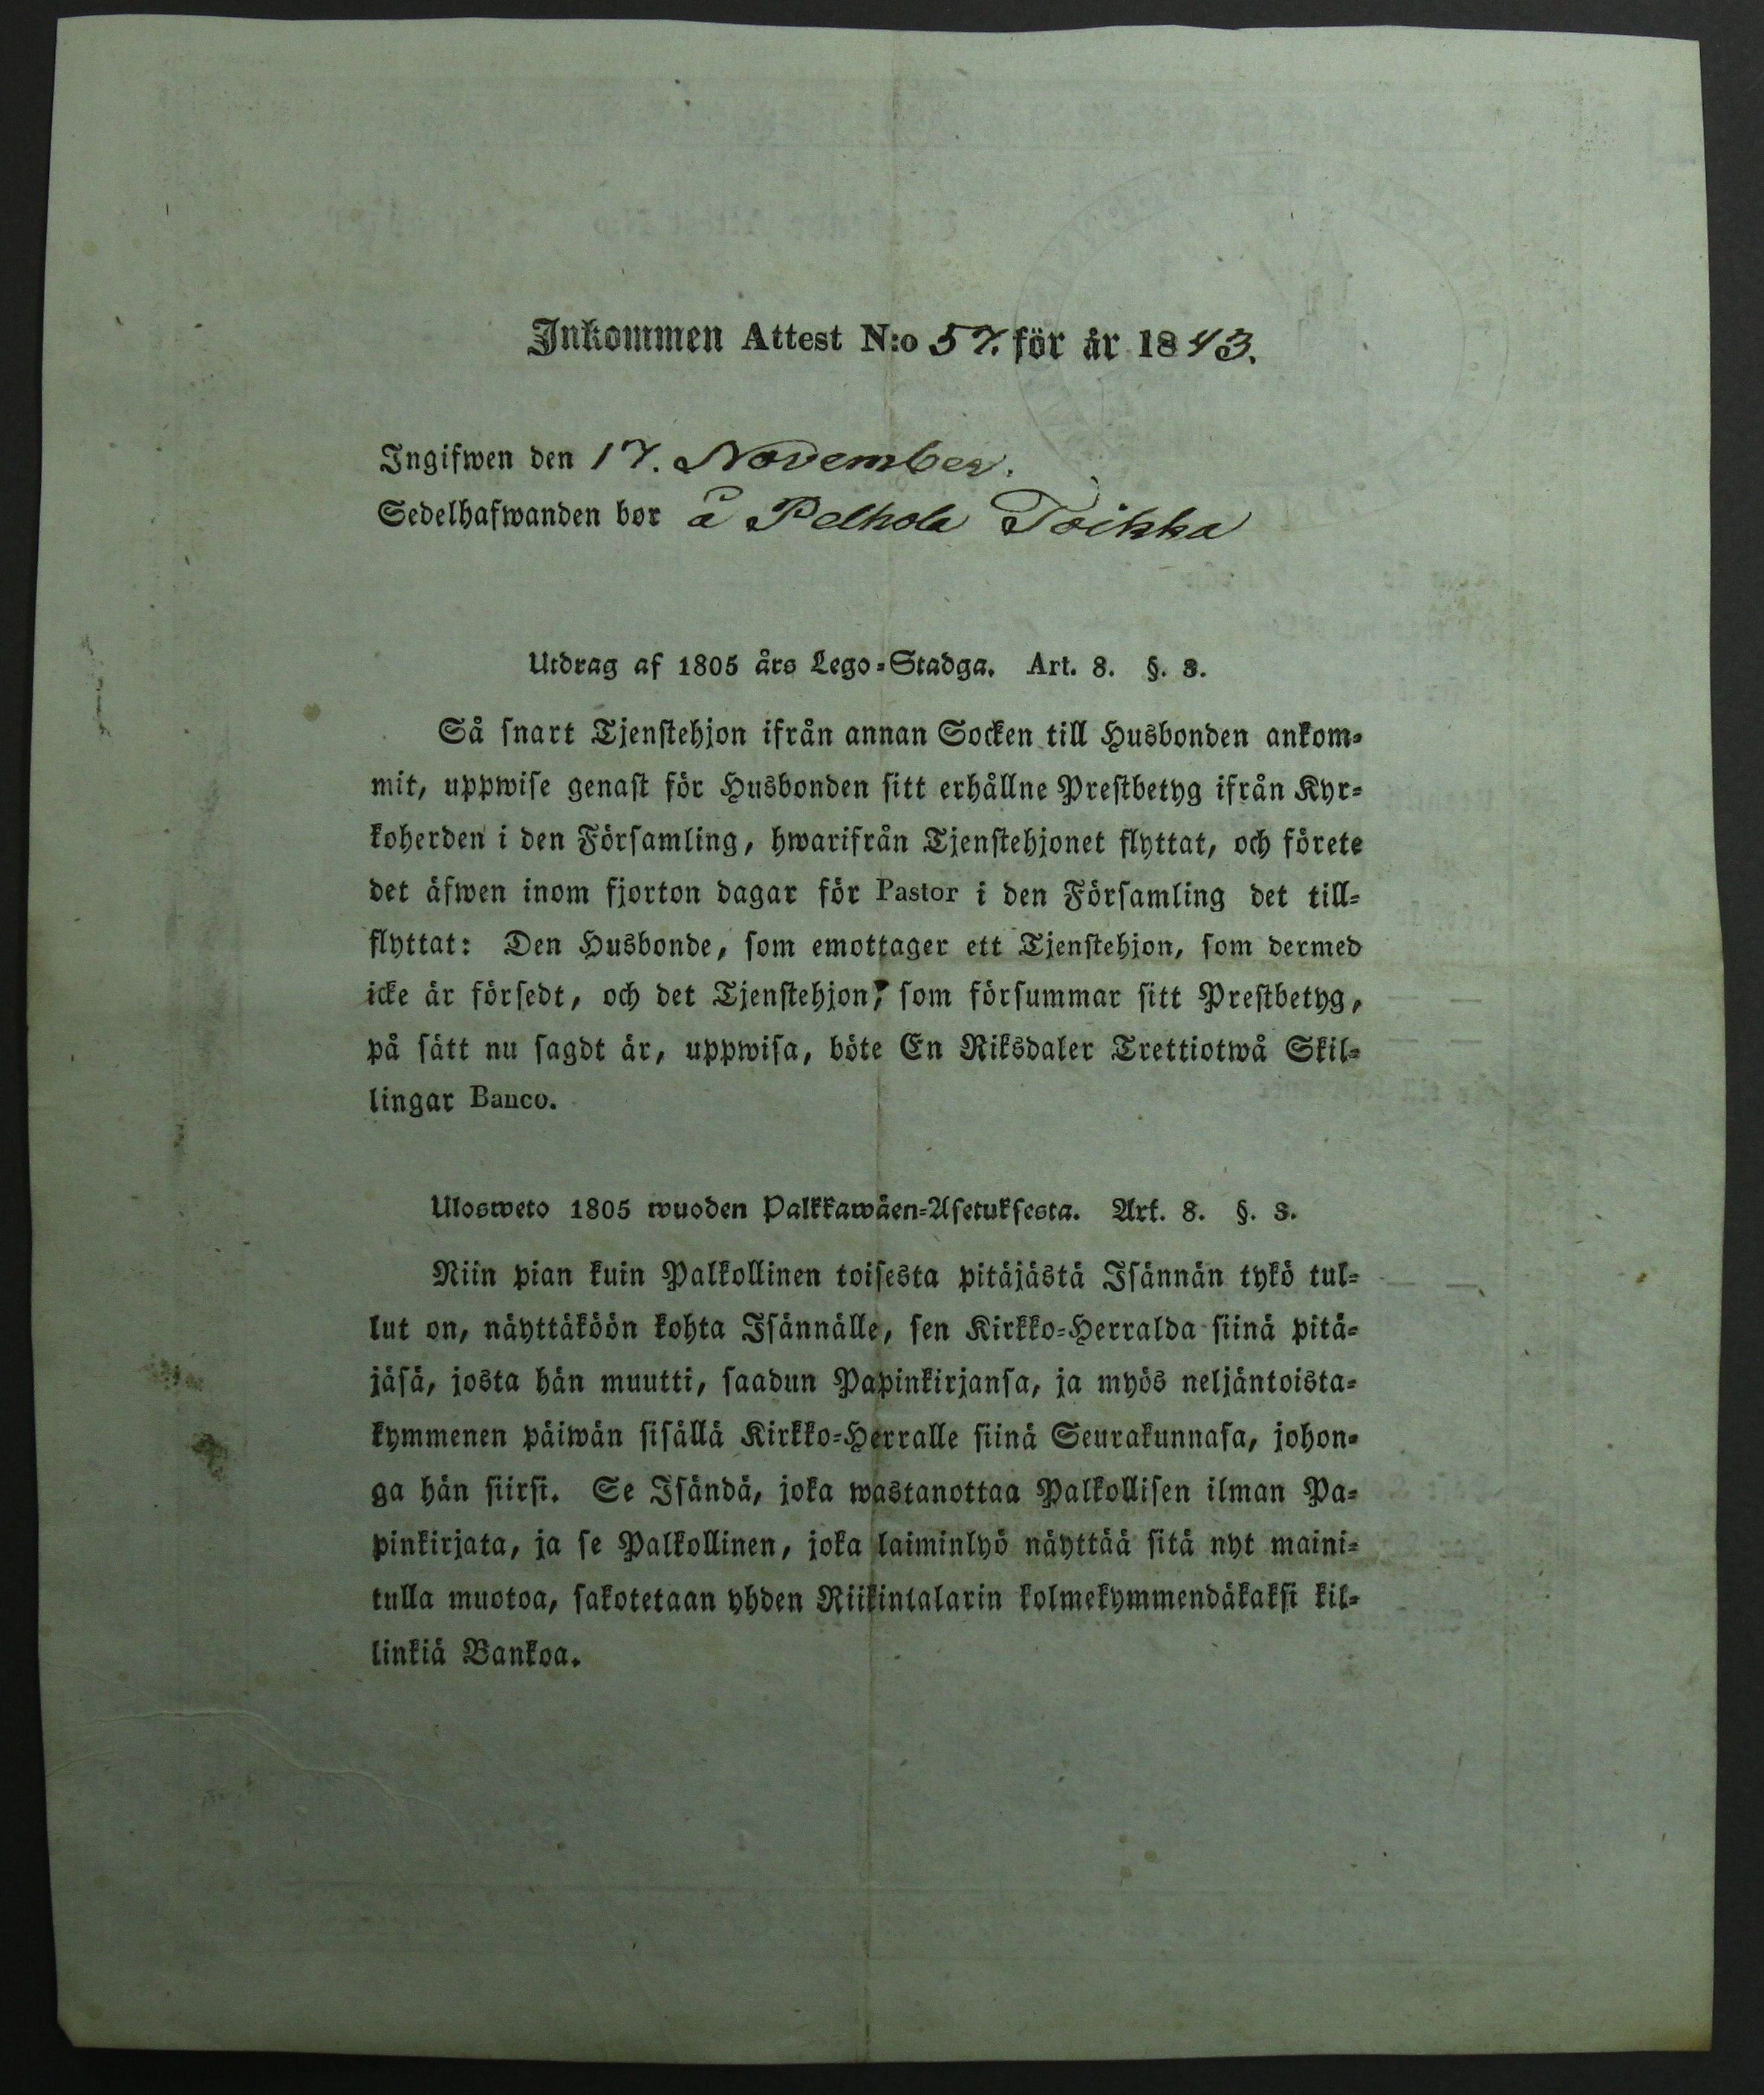 Inkommen Attest N:o 57. för år 1843.
Ingifwen den 17. November.
Sedelhafwanden bor å Pelhola Toikka
Utdrag af 1805 års Lego-Stadga. Art. 8. §. 3.
Så snart Tjenstehjon ifrån annan Socken till Husbonden ankom-
mit, uppwise genast för Husbonden sitt erhållne Prestbetyg ifrån Kyr-
koherden i den Församling, hwarifrån Tjenstehjonet flyttat, och förete
det äfwen inom fjorton dagar för Pastor i den Församling det till-
flyttat: Den Husbonde, som emottager ett Tjenstehjon, som dermed
icke är försedt, och det Tjenstehjon, som försummar sitt Prestbetyg,
på sätt nu sagdt är, uppwisa, böte En Riksdaler Trettiotwå Skil-
lingar Banco.
Ulosweto 1805 wuoden Palkkawäen-Asetuksesta. Art. 8. §. 3.
Niin pian kuin Palkollinen toisesta pitäjästä Isännän tykö tul-
lut on, näyttäköön kohta Isännälle, sen Kirkko-Herralda siinä pitä-
jäsä, josta hän muutti, saadun Papinkirjansa, ja myös neljäntoista-
kymmenen päiwän sisällä Kirkko-Herralle siinä Seurakunnasa, johon-
ga hän siirsi. Se Isändä, joka wastanottaa Palkollisen ilman Pa-
pinkirjata, ja se Palkollinen, joka laiminlyö näyttää sitä nyt maini-
tulla muotoa, sakotetaan yhden Riikintalarin kolmekymmendäkaksi kil-
linkiä Bankoa.